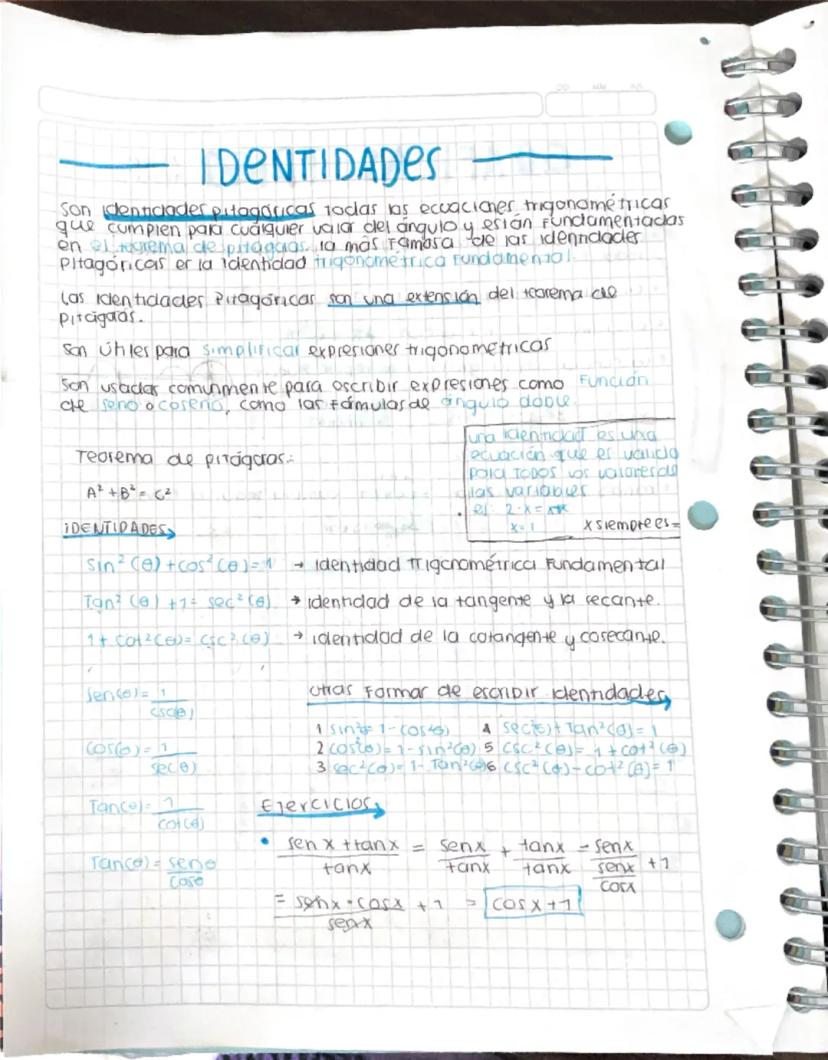 IDENTIDADES
Son identidades pitagóricas todas las ecuaciones trigonométricas
que cumplen para cualquier valor del ángulo y están Fundamentadas
en el teorema de pitágoras, la más Famosa de las identidades
Pitagóricas es la identidad trigonométrica Fundamental.
Las identidades Pitagóricas son una extensión del teorema de
pitágoras.
Son útiles para simplificar expresiones trigonométricas
Son usadas comunmente para escribir expresiones como Función
de seno o coseno, como las fórmulas de ángulo doble.
una identidad es una
ecuación que es valida
para TODOS los valores de
las variables
ej: 2·x =
x=1 x siempre es=
Teorema de pitágoras:
A² + B² = C²
IDENTIDADES
Sin² (θ) + cos² (θ) = 1 → Identidad Trigonométrica Fundamental
Tan² (θ) + 1 = sec² (θ) → identidad de la tangente y la secante.
1 + Cot² (θ) = Csc² (θ) → identidad de la cotangente y cosecante.
Sen(θ) = 1 / csc(θ)
Cos(θ) = 1 / sec(θ)
Tan(θ) = 1 / cot(θ)
Tan(θ) = senθ / cosθ
Otras Formas de escribir identidades
1 sin²θ = 1 - cos²θ 4 sec²(θ) + Tan²(θ) = 1
2 cos²(θ) = 1 - sin²(θ) 5 csc²(θ) = 1 + cot²(θ)
3 sec²(θ) = 1 - Tan²(θ) 6 csc²(θ) - cot²(θ) = 1
Ejercicios
• sen x + tan x / tan x = sen x / tan x + tan x / tan x = sen x / sen x / cos x + 1
= sen x · cos x / sen x + 1 = cos x + 1